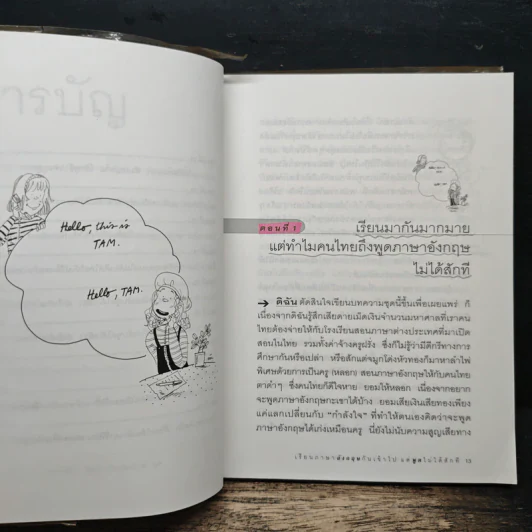 Hello, this is
TAM.
Hello, TAM.
ตอนที่ 1
เรียนมากันมากมาย
แต่ทำไมคนไทยถึงพูดภาษาอังกฤษ
ไม่ได้สักที
→ ดิฉันตัดสินใจเขียนบทความชุดนี้ขึ้นเพื่อเผยแพร่ ก็
เนื่องจากดิฉันรู้สึกเสียดายเม็ดเงินจำนวนมหาศาลที่เราคน
ไทยต้องจ่ายให้กับโรงเรียนสอนภาษาต่างประเทศที่มาเปิด
สอนในไทย รวมทั้งค่าจ้างครูฝรั่ง ซึ่งก็ไม่รู้ว่ามีดีกรีทางการ
ศึกษากันหรือเปล่า หรือสักแต่จมูกโด่งหัวทองก็มาหาลำไพ่
พิเศษด้วยการเป็นครู (หลอก) สอนภาษาอังกฤษให้กับคนไทย
ตาดำๆ ซึ่งคนไทยก็ดีใจหาย ยอมให้หลอก เนื่องจากอยาก
จะพูดภาษาอังกฤษกะเขาได้บ้าง ยอมเสียเงินเสียทองเพียง
แค่แลกเปลี่ยนกับ "กำลังใจ" ที่ทำให้ตนเองคิดว่าจะพูด
ภาษาอังกฤษได้เก่งเหมือนครู นี่ยังไม่นับความสูญเสียทาง
เรียนภาษาอังกฤษกันเข้าไป แต่พูดไม่ได้สักที 13